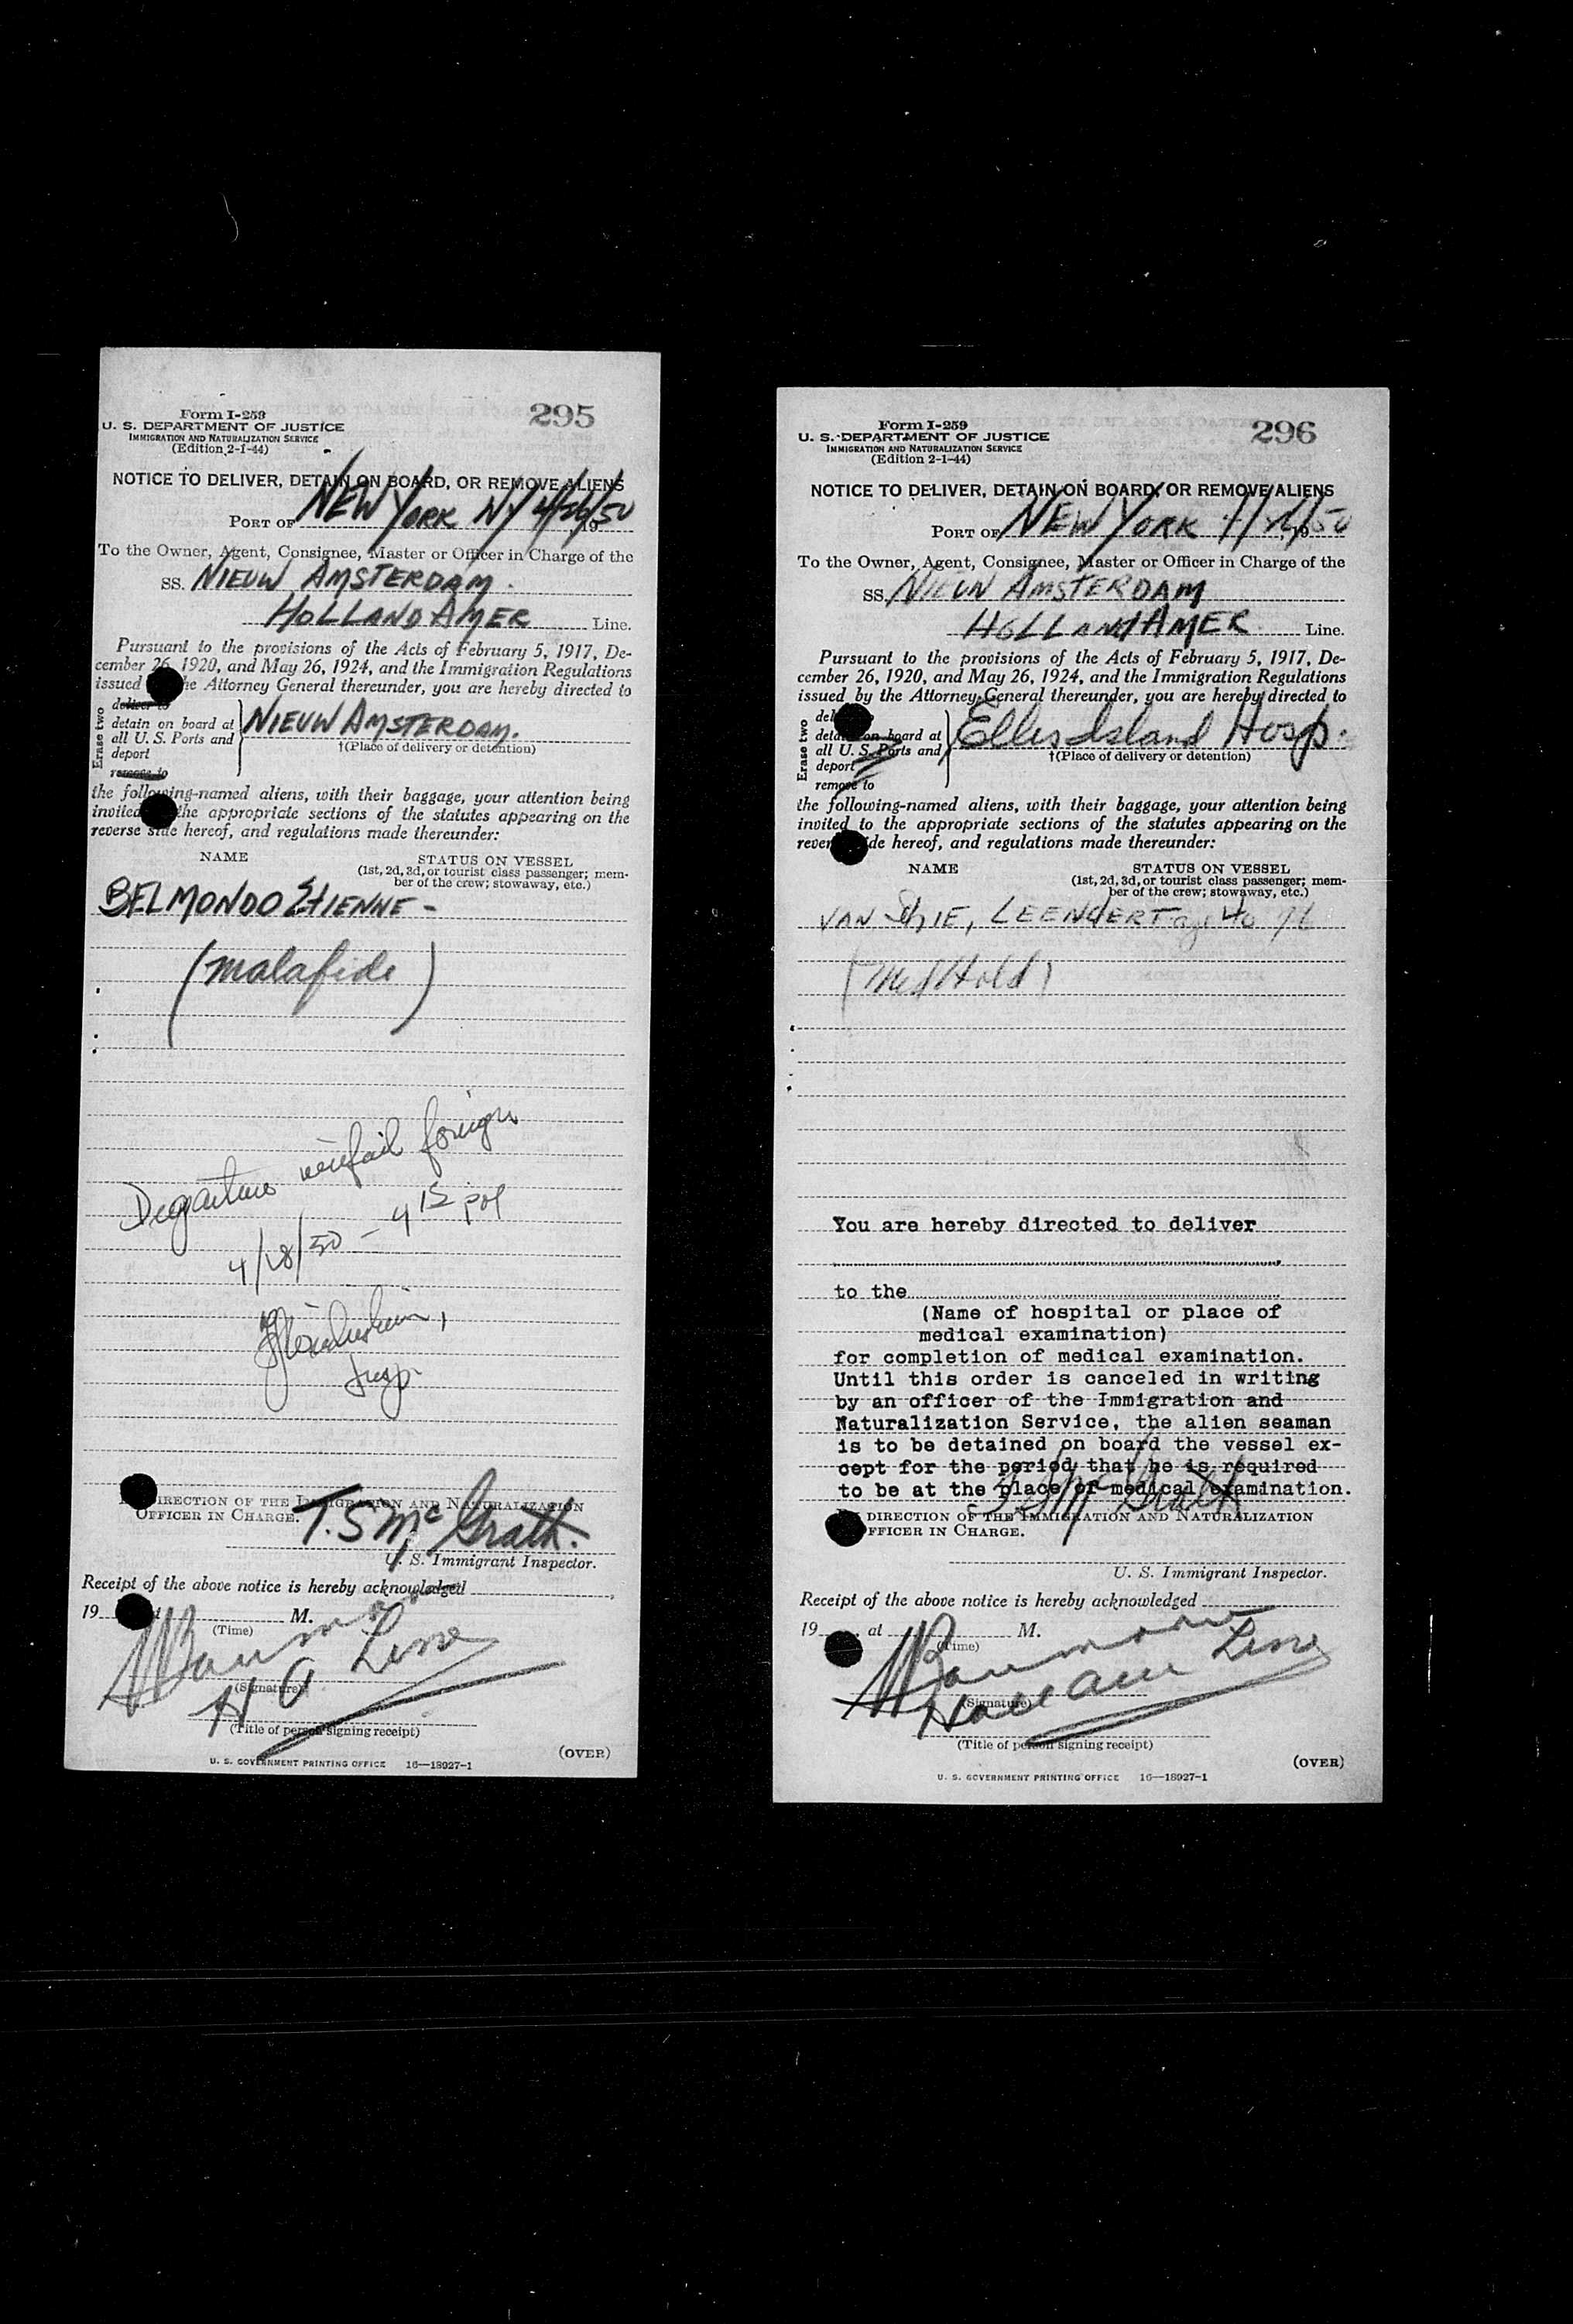 295
Form I-259
U. S. DEPARTMENT OF JUSTICE
IMMIGRATION AND NATURALIZATION SERVICE
(Edition 2-1-44)
NOTICE TO DELIVER, DETAIN ON BOARD, OR REMOVE ALIENS
PORT OF NEW YORK NY 4/26/50, 19
To the Owner, Agent, Consignee, Master or Officer in Charge of the
SS. NIEUW AMSTERDAM.
HOLLAND AMER Line.
Pursuant to the provisions of the Acts of February 5, 1917, De-
cember 26, 1920, and May 26, 1924, and the Immigration Regulations
issued he Attorney General thereunder, you are hereby directed to
Erase two
deliver to
detain on board at
all U. S. Ports and
deport
remove to
NIEUW AMSTERDAM.
†(Place of delivery or detention)
the following-named aliens, with their baggage, your attention being
invited the appropriate sections of the statutes appearing on the
reverse side hereof, and regulations made thereunder:
NAME
STATUS ON VESSEL
(1st, 2d, 3d, or tourist class passenger; mem-
ber of the crew; stowaway, etc.)
BELMONDO ETIENNE -
(malafide)
Departure verified foreign
4/28/50 - 4 15 PM
Insp.
DIRECTION OF THE IMMIGRATION AND NATURALIZATION
OFFICER IN CHARGE.
T. S. McGrath.
U. S. Immigrant Inspector.
Receipt of the above notice is hereby acknowledged
19 M.
(Time)
H A Line
(Signature)
(Title of person signing receipt)
(OVER)
U. S. GOVERNMENT PRINTING OFFICE 16—18927-1
296
Form I-259
U. S. DEPARTMENT OF JUSTICE
IMMIGRATION AND NATURALIZATION SERVICE
(Edition 2-1-44)
NOTICE TO DELIVER, DETAIN ON BOARD, OR REMOVE ALIENS
PORT OF NEW YORK 4/26/50, 19
To the Owner, Agent, Consignee, Master or Officer in Charge of the
SS. NIEUW AMSTERDAM
HOLLAND AMER Line.
Pursuant to the provisions of the Acts of February 5, 1917, De-
cember 26, 1920, and May 26, 1924, and the Immigration Regulations
issued by the Attorney General thereunder, you are hereby directed to
Erase two
del
detain on board at
all U. S. Ports and
deport
remove to
Ellis Island Hosp.
†(Place of delivery or detention)
the following-named aliens, with their baggage, your attention being
invited to the appropriate sections of the statutes appearing on the
rever de hereof, and regulations made thereunder:
NAME
STATUS ON VESSEL
(1st, 2d, 3d, or tourist class passenger; mem-
ber of the crew; stowaway, etc.)
VAN SCHIE, LEENDERT age 40
(Med Hold)
You are hereby directed to deliver
to the
(Name of hospital or place of
medical examination)
for completion of medical examination.
Until this order is canceled in writing
by an officer of the Immigration and
Naturalization Service, the alien seaman
is to be detained on board the vessel ex-
cept for the period that he is required
to be at the place of medical examination.
T S McGrath
DIRECTION OF THE IMMIGRATION AND NATURALIZATION
OFFICER IN CHARGE.
U. S. Immigrant Inspector.
Receipt of the above notice is hereby acknowledged
19 , at M.
(Time)
Holl Am Line
(Signature)
(Title of person signing receipt)
(OVER)
U. S. GOVERNMENT PRINTING OFFICE 16—18927-1